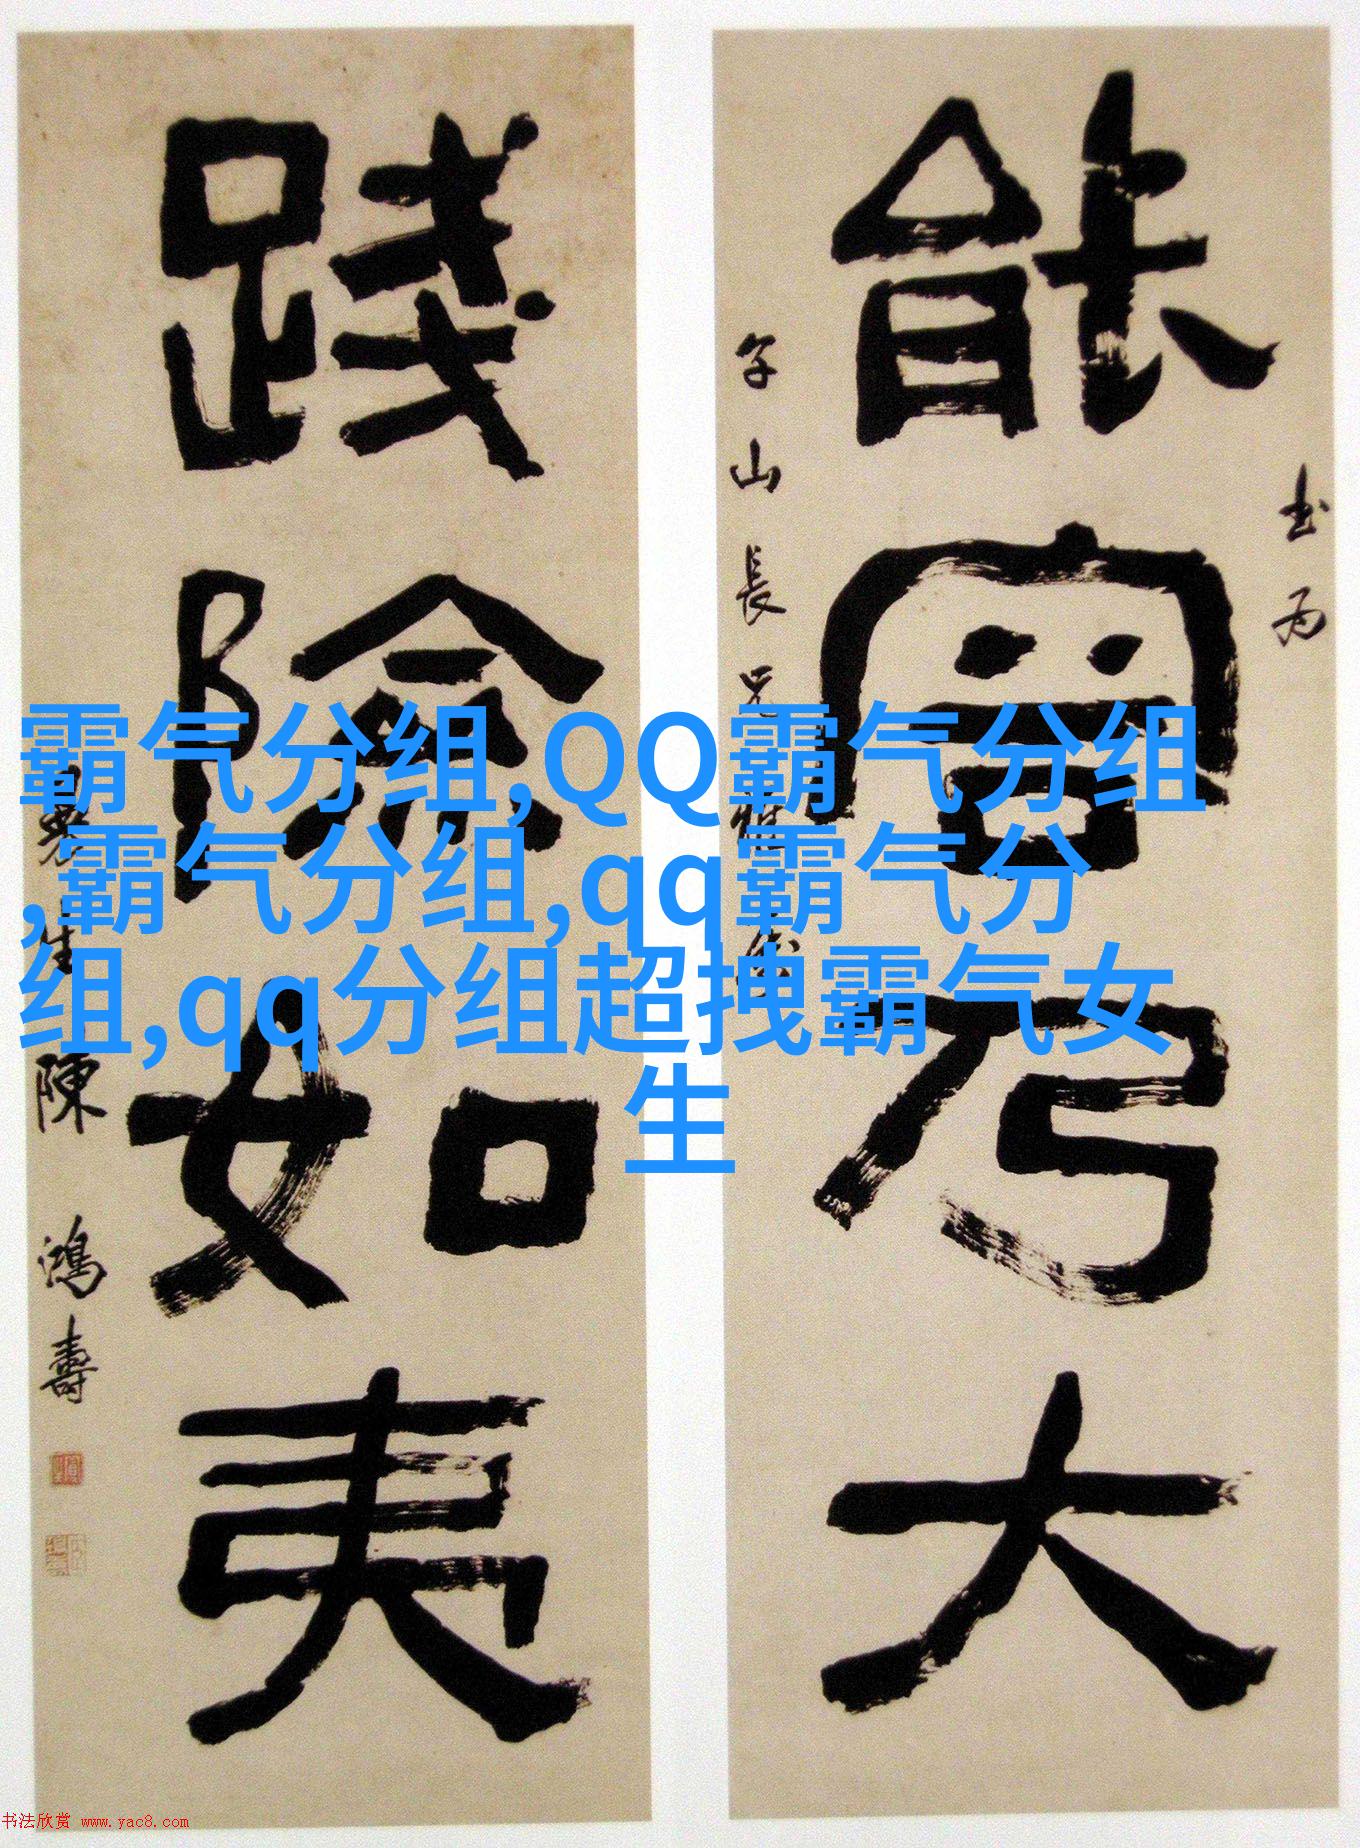 能容乃大
书为
子山長兄
踐險如夷
曼生陳鴻壽
霸气分组,QQ霸气分组
,霸气分组,qq霸气分
组,qq分组超拽霸气女
生
书法欣赏 www.yac8.com